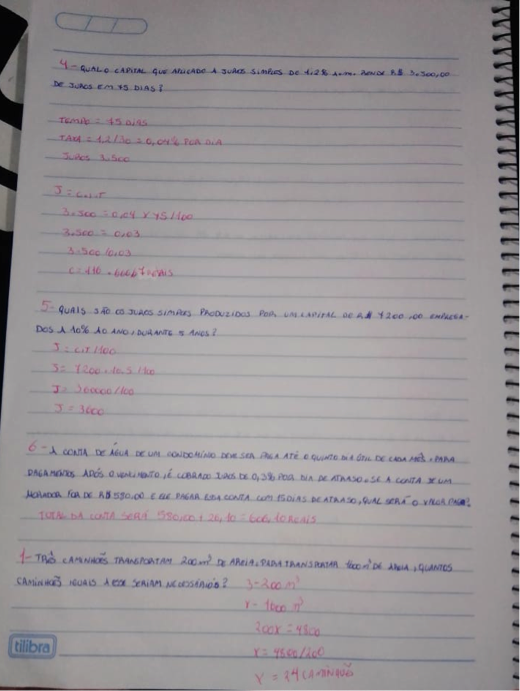 4- QUAL O CAPITAL QUE APLICADO A JUROS SIMPLES DE 1.2% A.M. RENDE R$ 3.500,00
DE JUROS EM 75 DIAS?
TEMPO = 75 DIAS
TAXA = 1,2/30 = 0,04% POR DIA
JUROS 3.500
J = C.I.T
3.500 = 0.04 X 75/100
3.500 = 0.03
3.500/0.03
5- QUAIS SÃO OS JUROS SIMPLES PRODUZIDOS POR UM CAPITAL DE R$ 7200,00 EMPREGA-
DOS A 10% AO ANO, DURANTE 5 ANOS?
J = CIT/100
J = 7200.10.5/100
J = 360000/100
J = 3600
6- A CONTA DE ÁGUA DE UM CONDOMÍNIO DEVE SER PAGA ATÉ O QUINTO DIA ÚTIL DE CADA MÊS. PARA
PAGAMENTOS APÓS O VENCIMENTO, É COBRADO JUROS DE 0,3% POR DIA DE ATRASO. SE A CONTA DE UM
MORADOR FOR DE R$ 580,00 E ELE PAGAR ESSA CONTA COM 15 DIAS DE ATRASO, QUAL SERÁ O VALOR PAGO?
TOTAL DA CONTA SERÁ 580,00 + 26,10 = 606,10 REAIS
1- TRÊS CAMINHÕES TRANSPORTAM 200m³ DE AREIA. PARA TRANSPORTAR 1600m³ DE AREIA, QUANTOS
CAMINHÕES IGUAIS A ESSE SERIAM NECESSÁRIOS? 3-200 m³
X-1600 m³
200X = 4800
X = 4800/200
X = 24 CAMINHÕES
tilibra